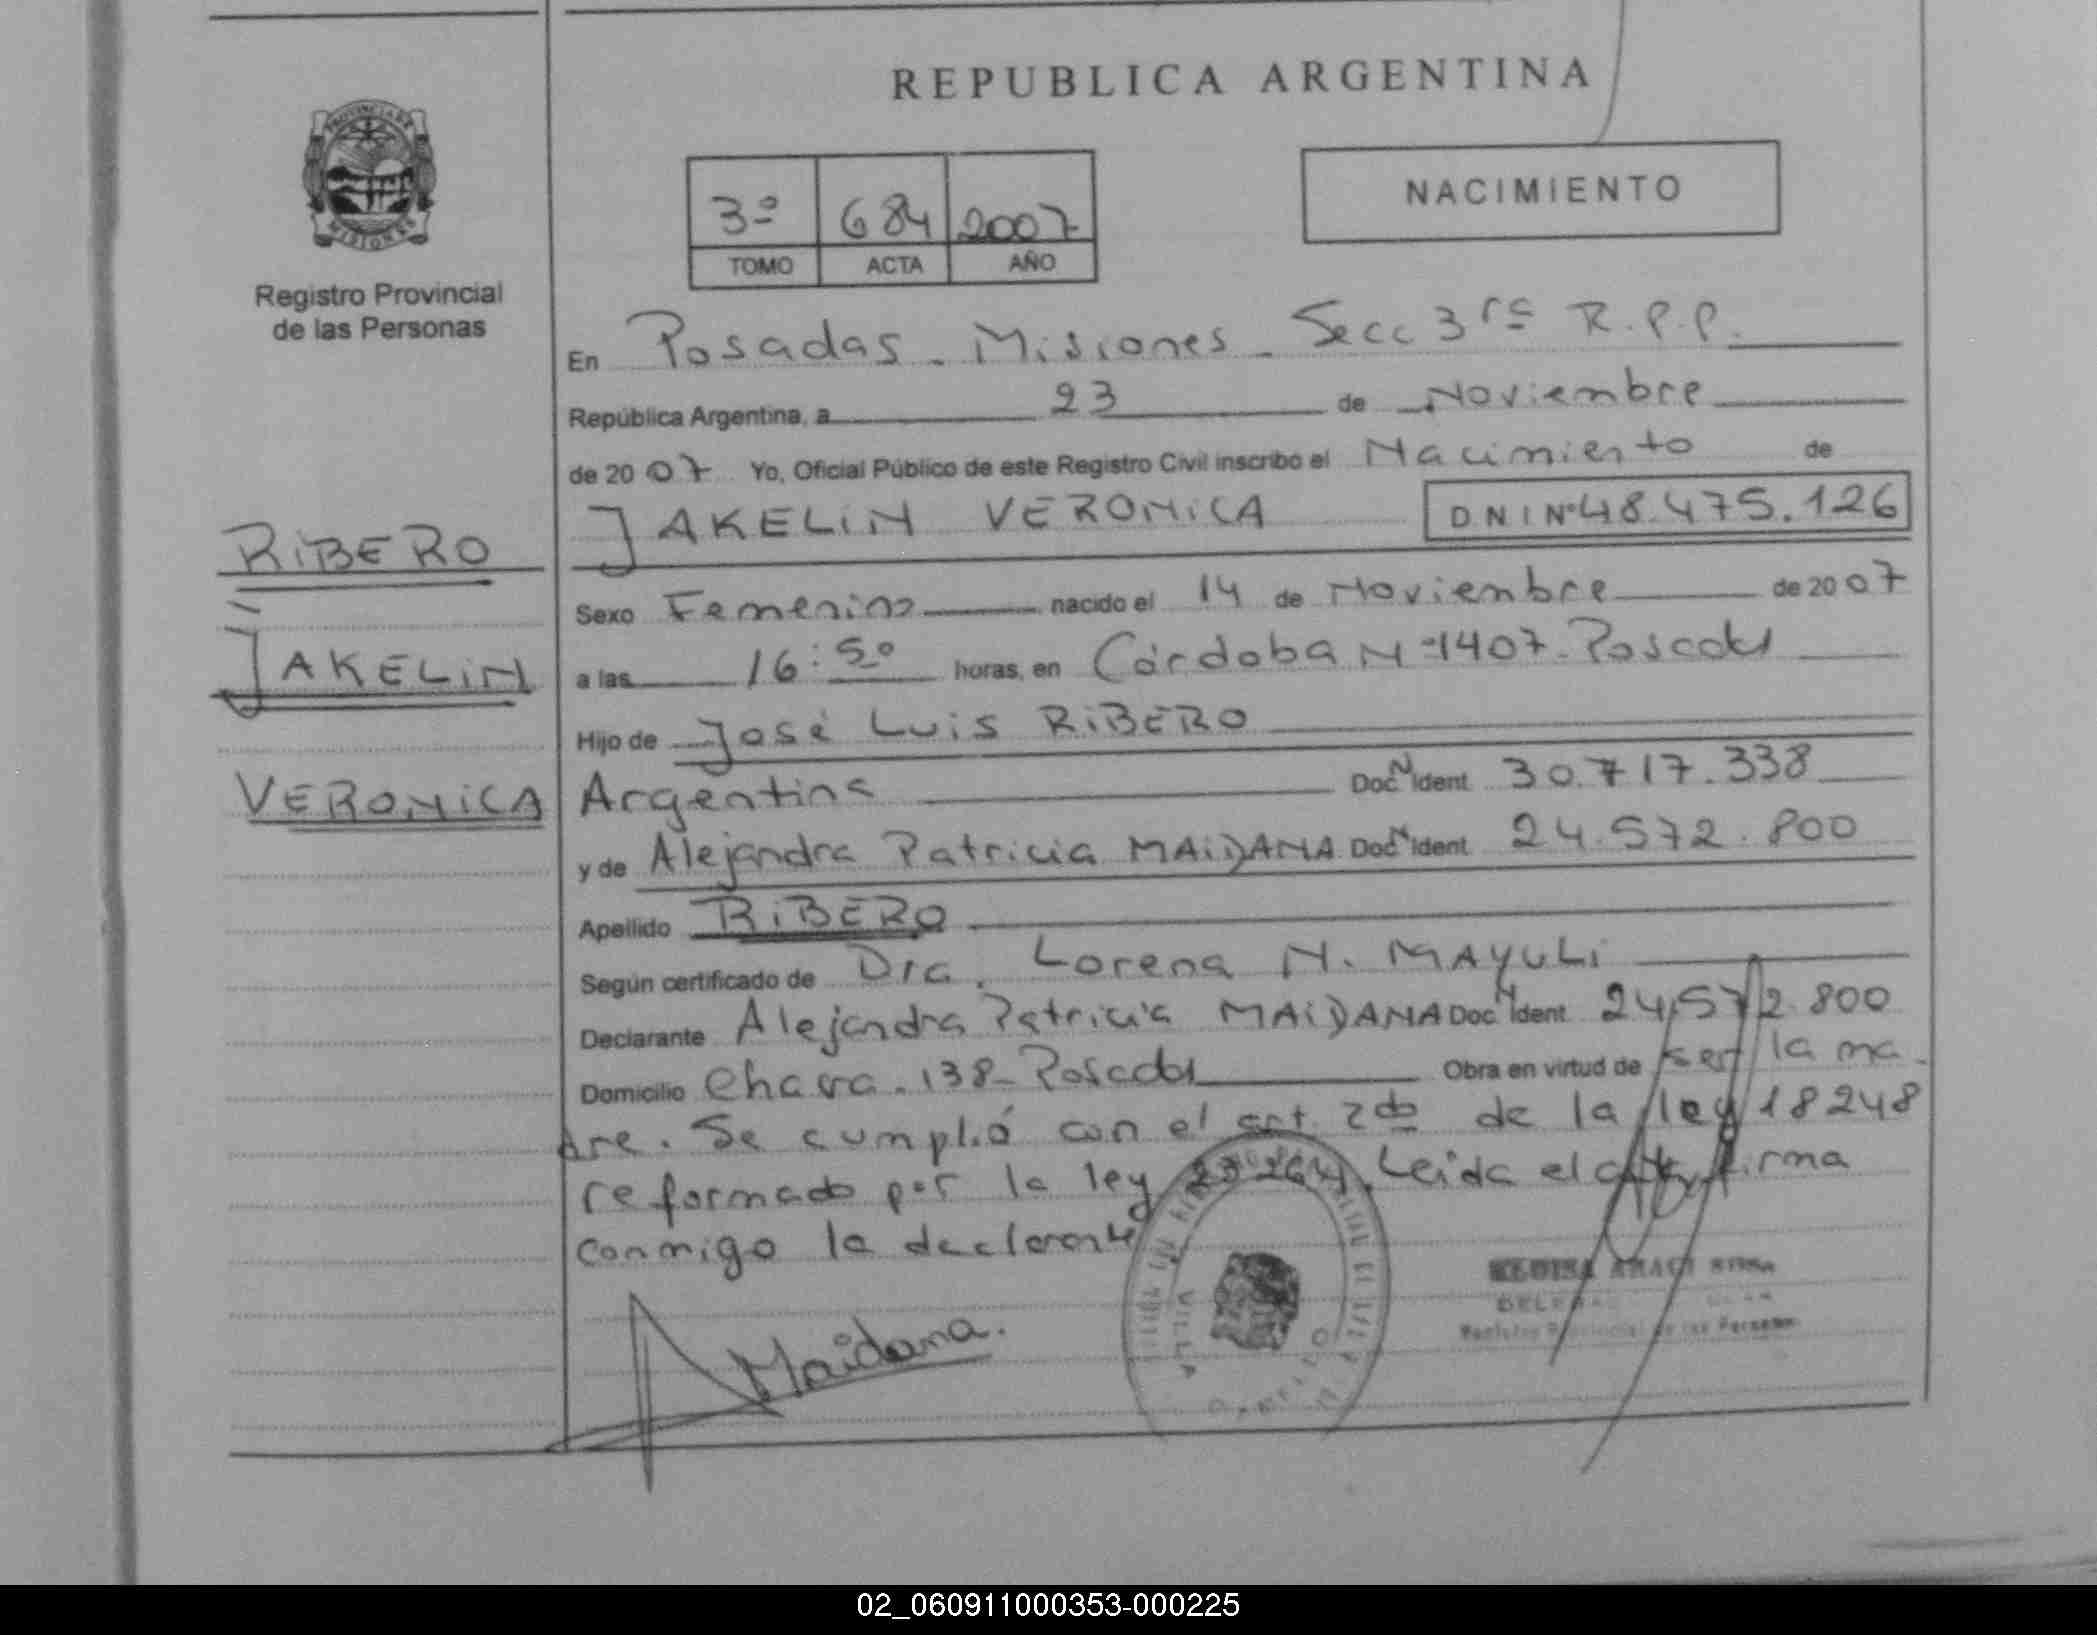 REPUBLICA ARGENTINA
PROVINCIA DE MISIONES
Registro Provincial
de las Personas
3º 684 2007
TOMO ACTA AÑO
NACIMIENTO
En Posadas - Misiones - Secc 3ra R.P.P.
República Argentina, a 23 de Noviembre
de 2007 Yo, Oficial Público de este Registro Civil inscribo el Nacimiento de
JAKELiN VERONiCA DNI Nº 48.475.126
RiBERO
JAKELiN
VERONiCA
Sexo Femenino nacido el 14 de Noviembre de 2007
a las 16:50 horas, en Córdoba Nº 1407 - Posadas
Hijo de José Luis RiBERO
Argentina Doc N Ident. 30.717.338
y de Alejandra Patricia MAiDANA Doc N Ident. 24.572.800
Apellido RiBERO
Según certificado de Dra. Lorena N. MAYULi
Declarante Alejandra Patricia MAiDANA Doc N Ident. 24.572.800
Domicilio Chacra - 138 - Posadas Obra en virtud de ser la ma-
dre. Se cumplió con el art. 2do de la ley 18248
reformado por la ley 23264. Leida el acta, firma
conmigo la declarante
AMaidana.
VILLA
02_060911000353-000225